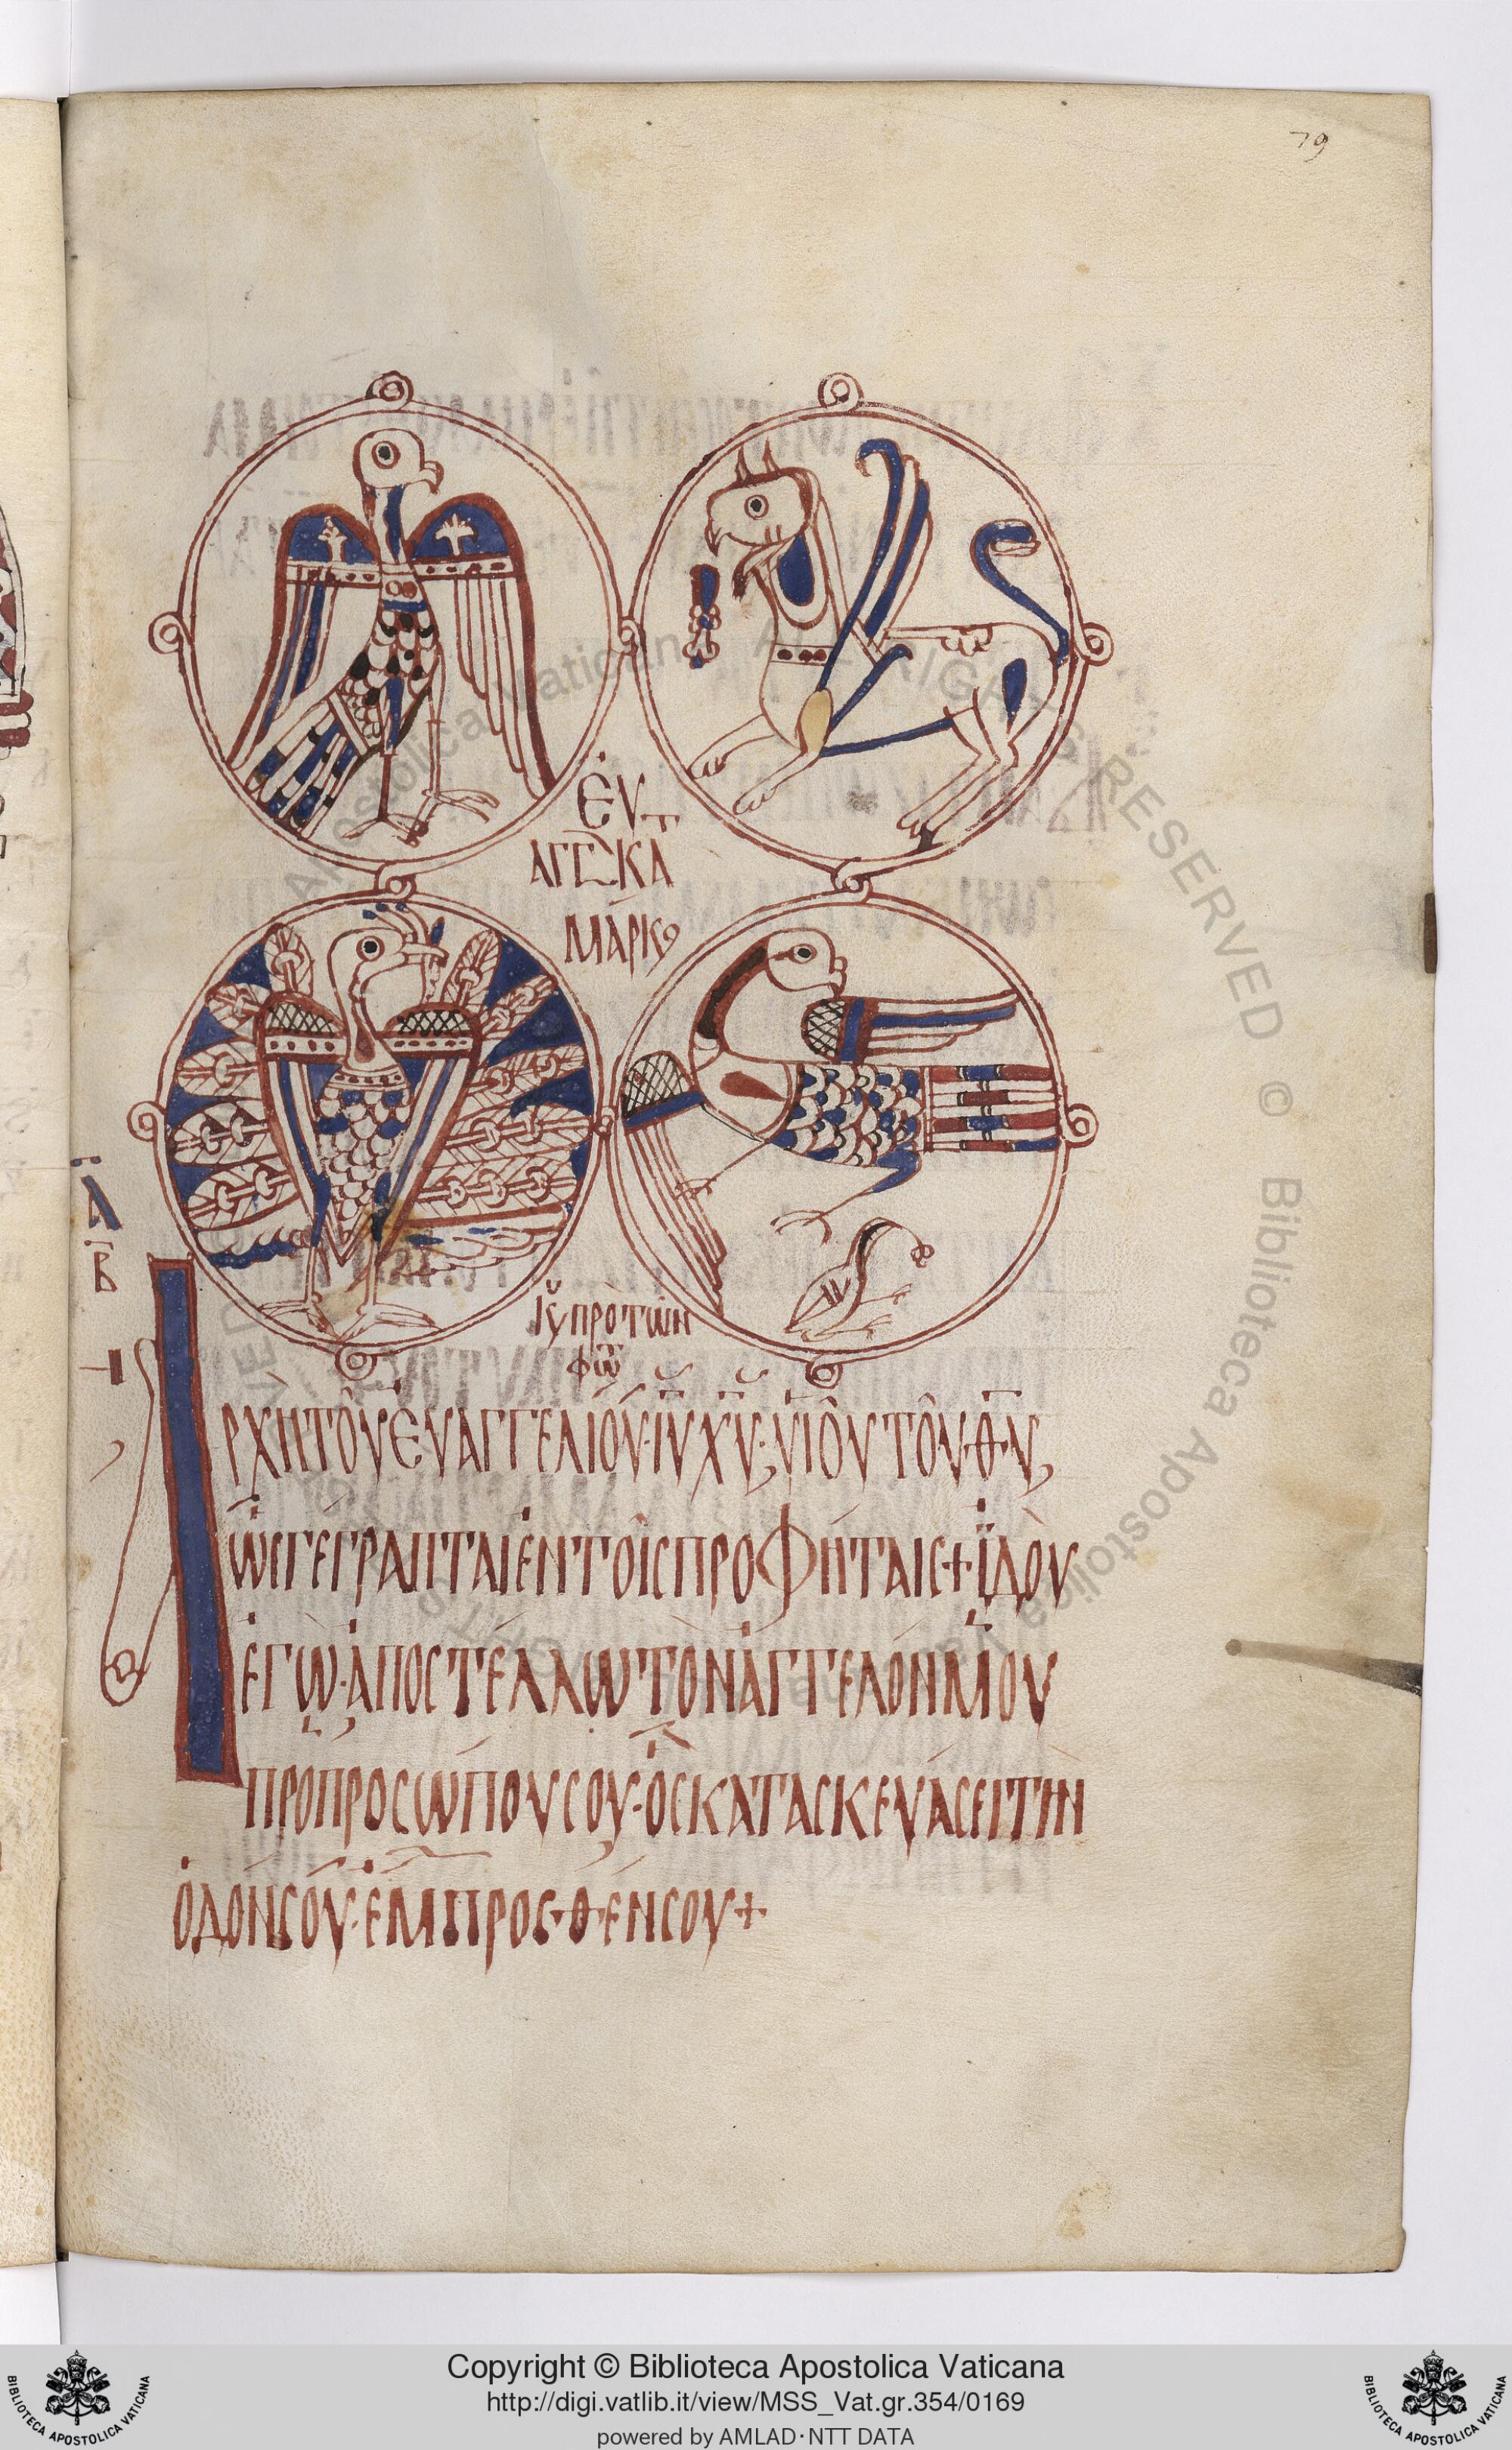 79
ἘΥ
ΑΓΓΚΑΤ
ΜΑΡΚΟ
Α
Β
ΚΥ ΠΡΟ ΤΩΝ
ΦΩΤ
ΑΡΧΗ ΤΟΥ ΕΥΑΓΓΕΛΙΟΥ· ΙΥ ΧΥ, ΥΙΟΥ ΤΟΥ ΘΥ,
ΩΣ ΓΕΓΡΑΠΤΑΙ ΕΝ ΤΟΙΣ ΠΡΟΦΗΤΑΙΣ + ΪΔΟΥ
ΕΓΩ· ΑΠΟΣΤΕΛΛΩ ΤΟΝ ΑΓΓΕΛΟΝ ΜΟΥ
ΠΡΟ ΠΡΟΣΩΠΟΥ ΣΟΥ· ΟΣ ΚΑΤΑΣΚΕΥΑΣΕΙ ΤΗΝ
ΟΔΟΝ ΣΟΥ· ΕΜΠΡΟΣΘΕΝ ΣΟΥ +
Apostolica Vaticana ALL RIGHTS RESERVED © Biblioteca Apostolica Vaticana
BIBLIOTECA APOSTOLICA VATICANA
Copyright © Biblioteca Apostolica Vaticana
http://digi.vatlib.it/view/MSS_Vat.gr.354/0169
powered by AMLAD·NTT DATA
BIBLIOTECA APOSTOLICA VATICANA